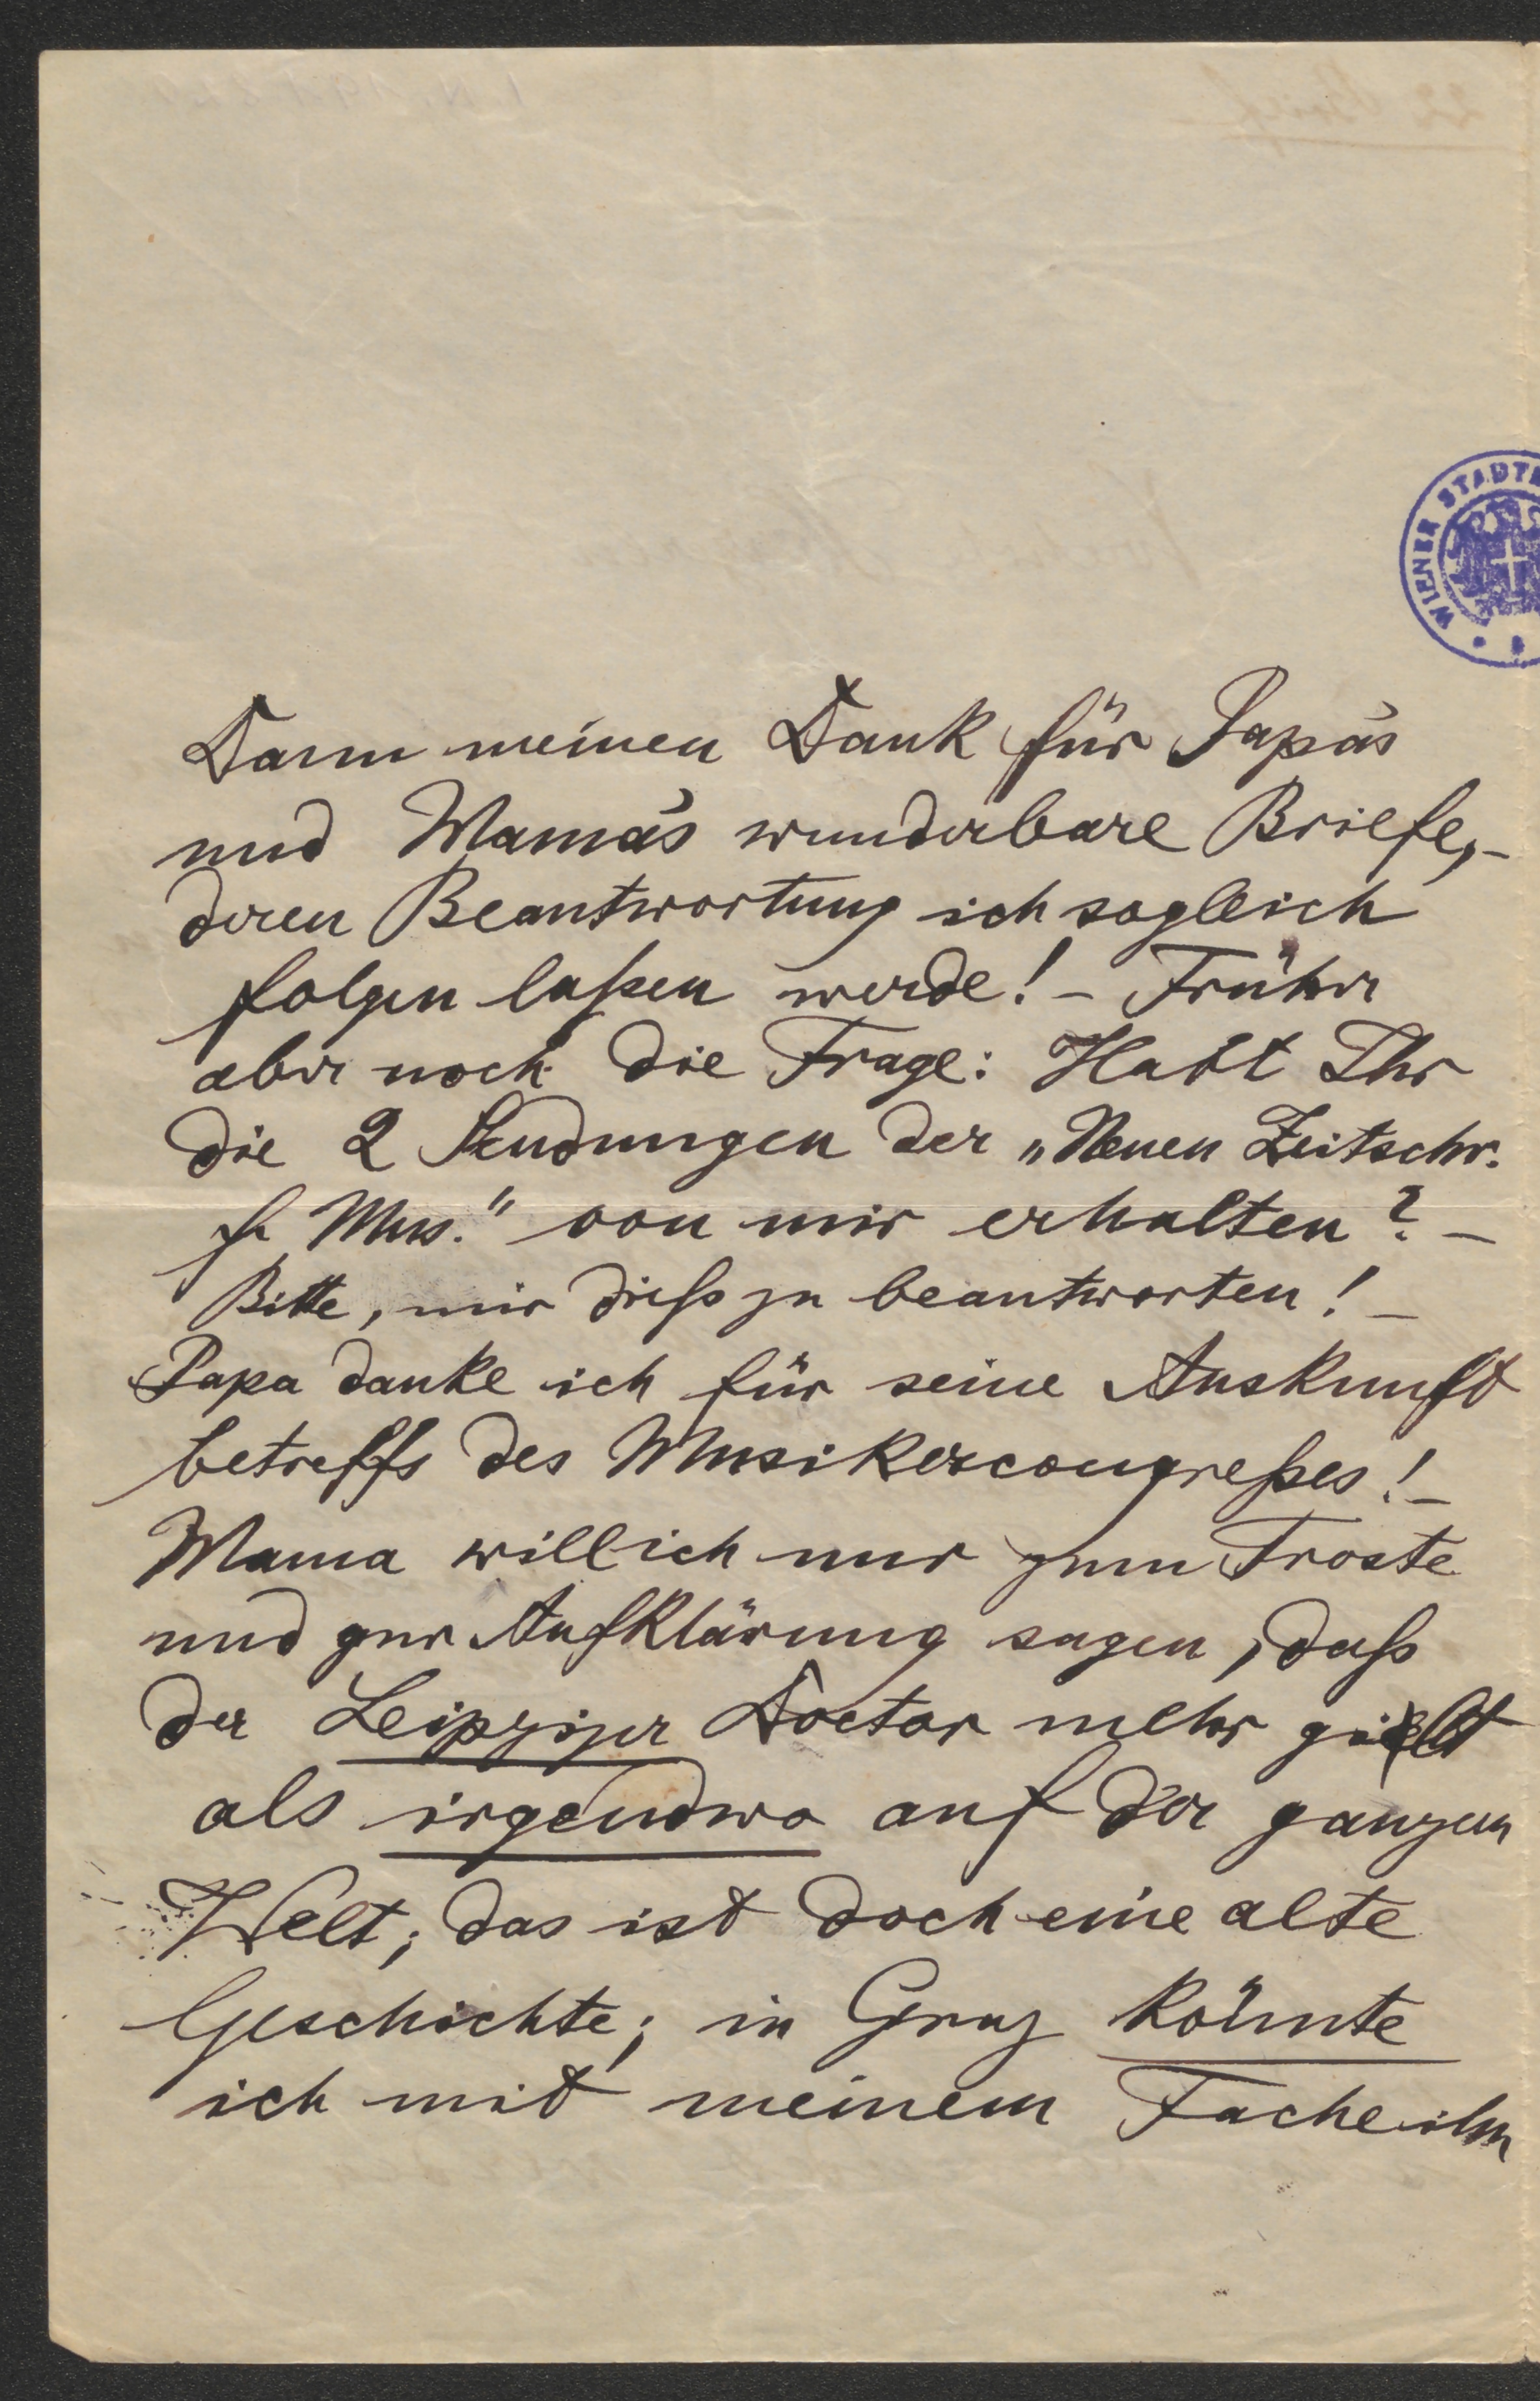 WIENER STADT
Dann meinen Dank für Papa's
und Mama's wunderbare Briefe,–
deren Beantwortung ich sogleich
folgen laßen werde! – Früher
aber noch die Frage: Habt Ihr
die 2 Sendungen der „Neuen Zeitschr.
f. Mus." von mir erhalten? –
Bitte, mir dieß zu beantworten! –
Papa danke ich für seine Auskunft
betreffs des Musikercongreßes! –
Mama will ich nur zum Troste
und zur Aufklärung sagen, daß
der Leipziger Doctor mehr gilt
als irgendwo auf der ganzen
Welt; das ist doch eine alte
Geschichte; in Graz könnte
ich mit meinem Fache ihn